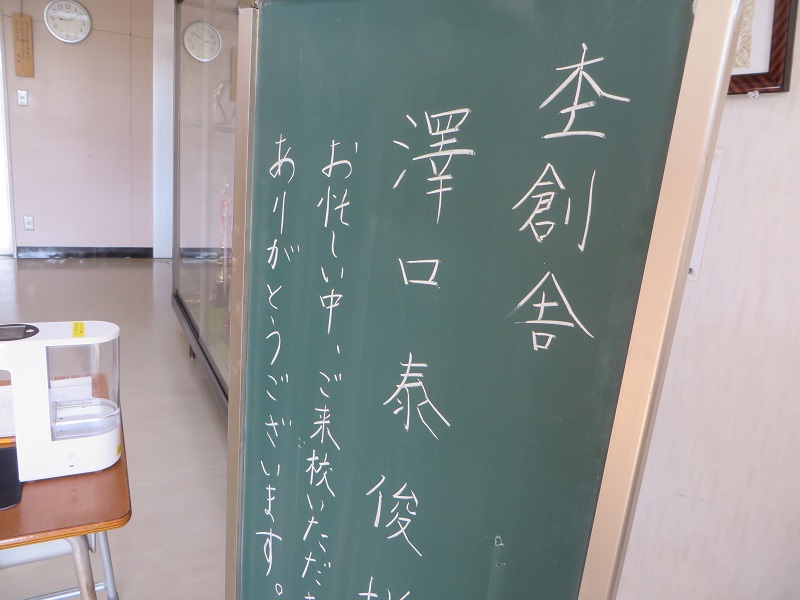 杢創舎
澤口泰俊
お忙しい中、ご来校いただ
ありがとうございます。